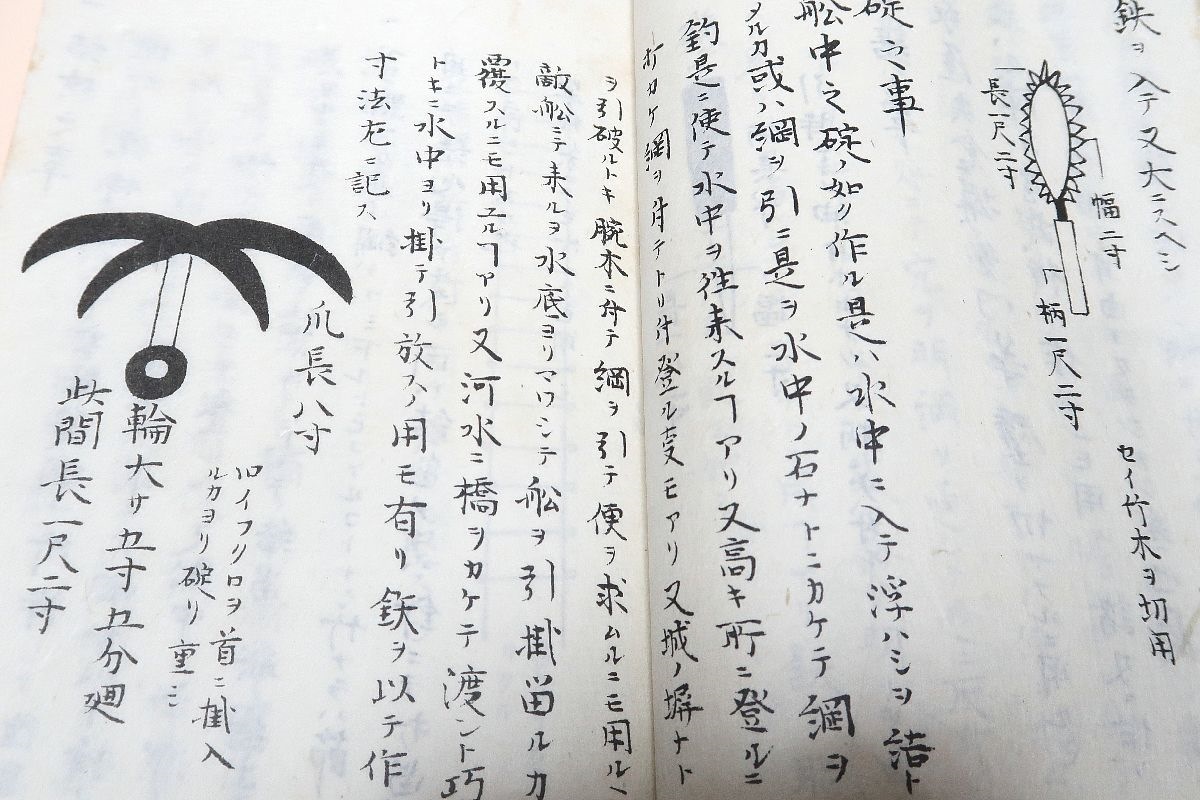 鉄ヲ入テ又大ニスヘシ
セイ竹木ヲ切用
幅二寸
柄一尺二寸
長一尺二寸
碇之事
舩中之碇ノ如ク作ル是ハ水中ニ入テ浮ハシヲ詰ト
メルカ或ハ綱ヲ引ニ是ヲ水中ノ石ナトニカケテ綱ヲ
釣是ニ便テ水中ヲ徃来スルヿアリ又高キ所ニ登ルニ
打カケ綱ヲ付テトリ付登ル叓モアリ又城ノ塀ナト
ヲ引破ルトキ腕木ニ付テ綱ヲ引テ便ヲ求ムルニモ用ル
敵舩ニテ来ルヲ水底ヨリマワシテ舩ヲ引掛留ルカ
覆スルニモ用ユルヿアリ又河水ニ橋ヲカケテ渡ント巧
トキニ水中ヨリ掛テ引放スノ用モ有リ鉄ヲ以テ作
寸法左ニ記ス
爪長八寸
イフクロヲ首ニ掛入
ルカヨリ碇リ重ミ
輪大サ五寸五分廻
此間長一尺二寸